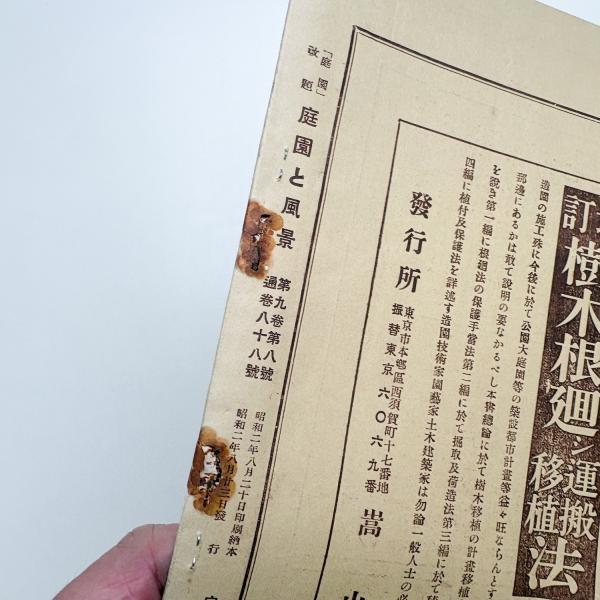 「庭園」
改題
庭園と風景
第九卷第八號
通卷八十八號
昭和二年八月二十日印刷納本
昭和二年八月廿三日發行
訂
樹木根廻シ運搬移植法
造園の施工殊に今後に於て公園大庭園等の築設都市計畫等益々旺ならんとす
那邊にあるかは敢て說明の要なかるべし本書總論に於て樹木移植の計畫移植
を說き第一編に根廻法の保護手當法第二編に於て掘取及荷造法第三編に於て
四編に植付及保護法を詳述す造園技術家園藝家土木建築家は勿論一般人士の必
發行所
東京市本鄕區西須賀町十七番地
振替東京六〇六九番
嵩山